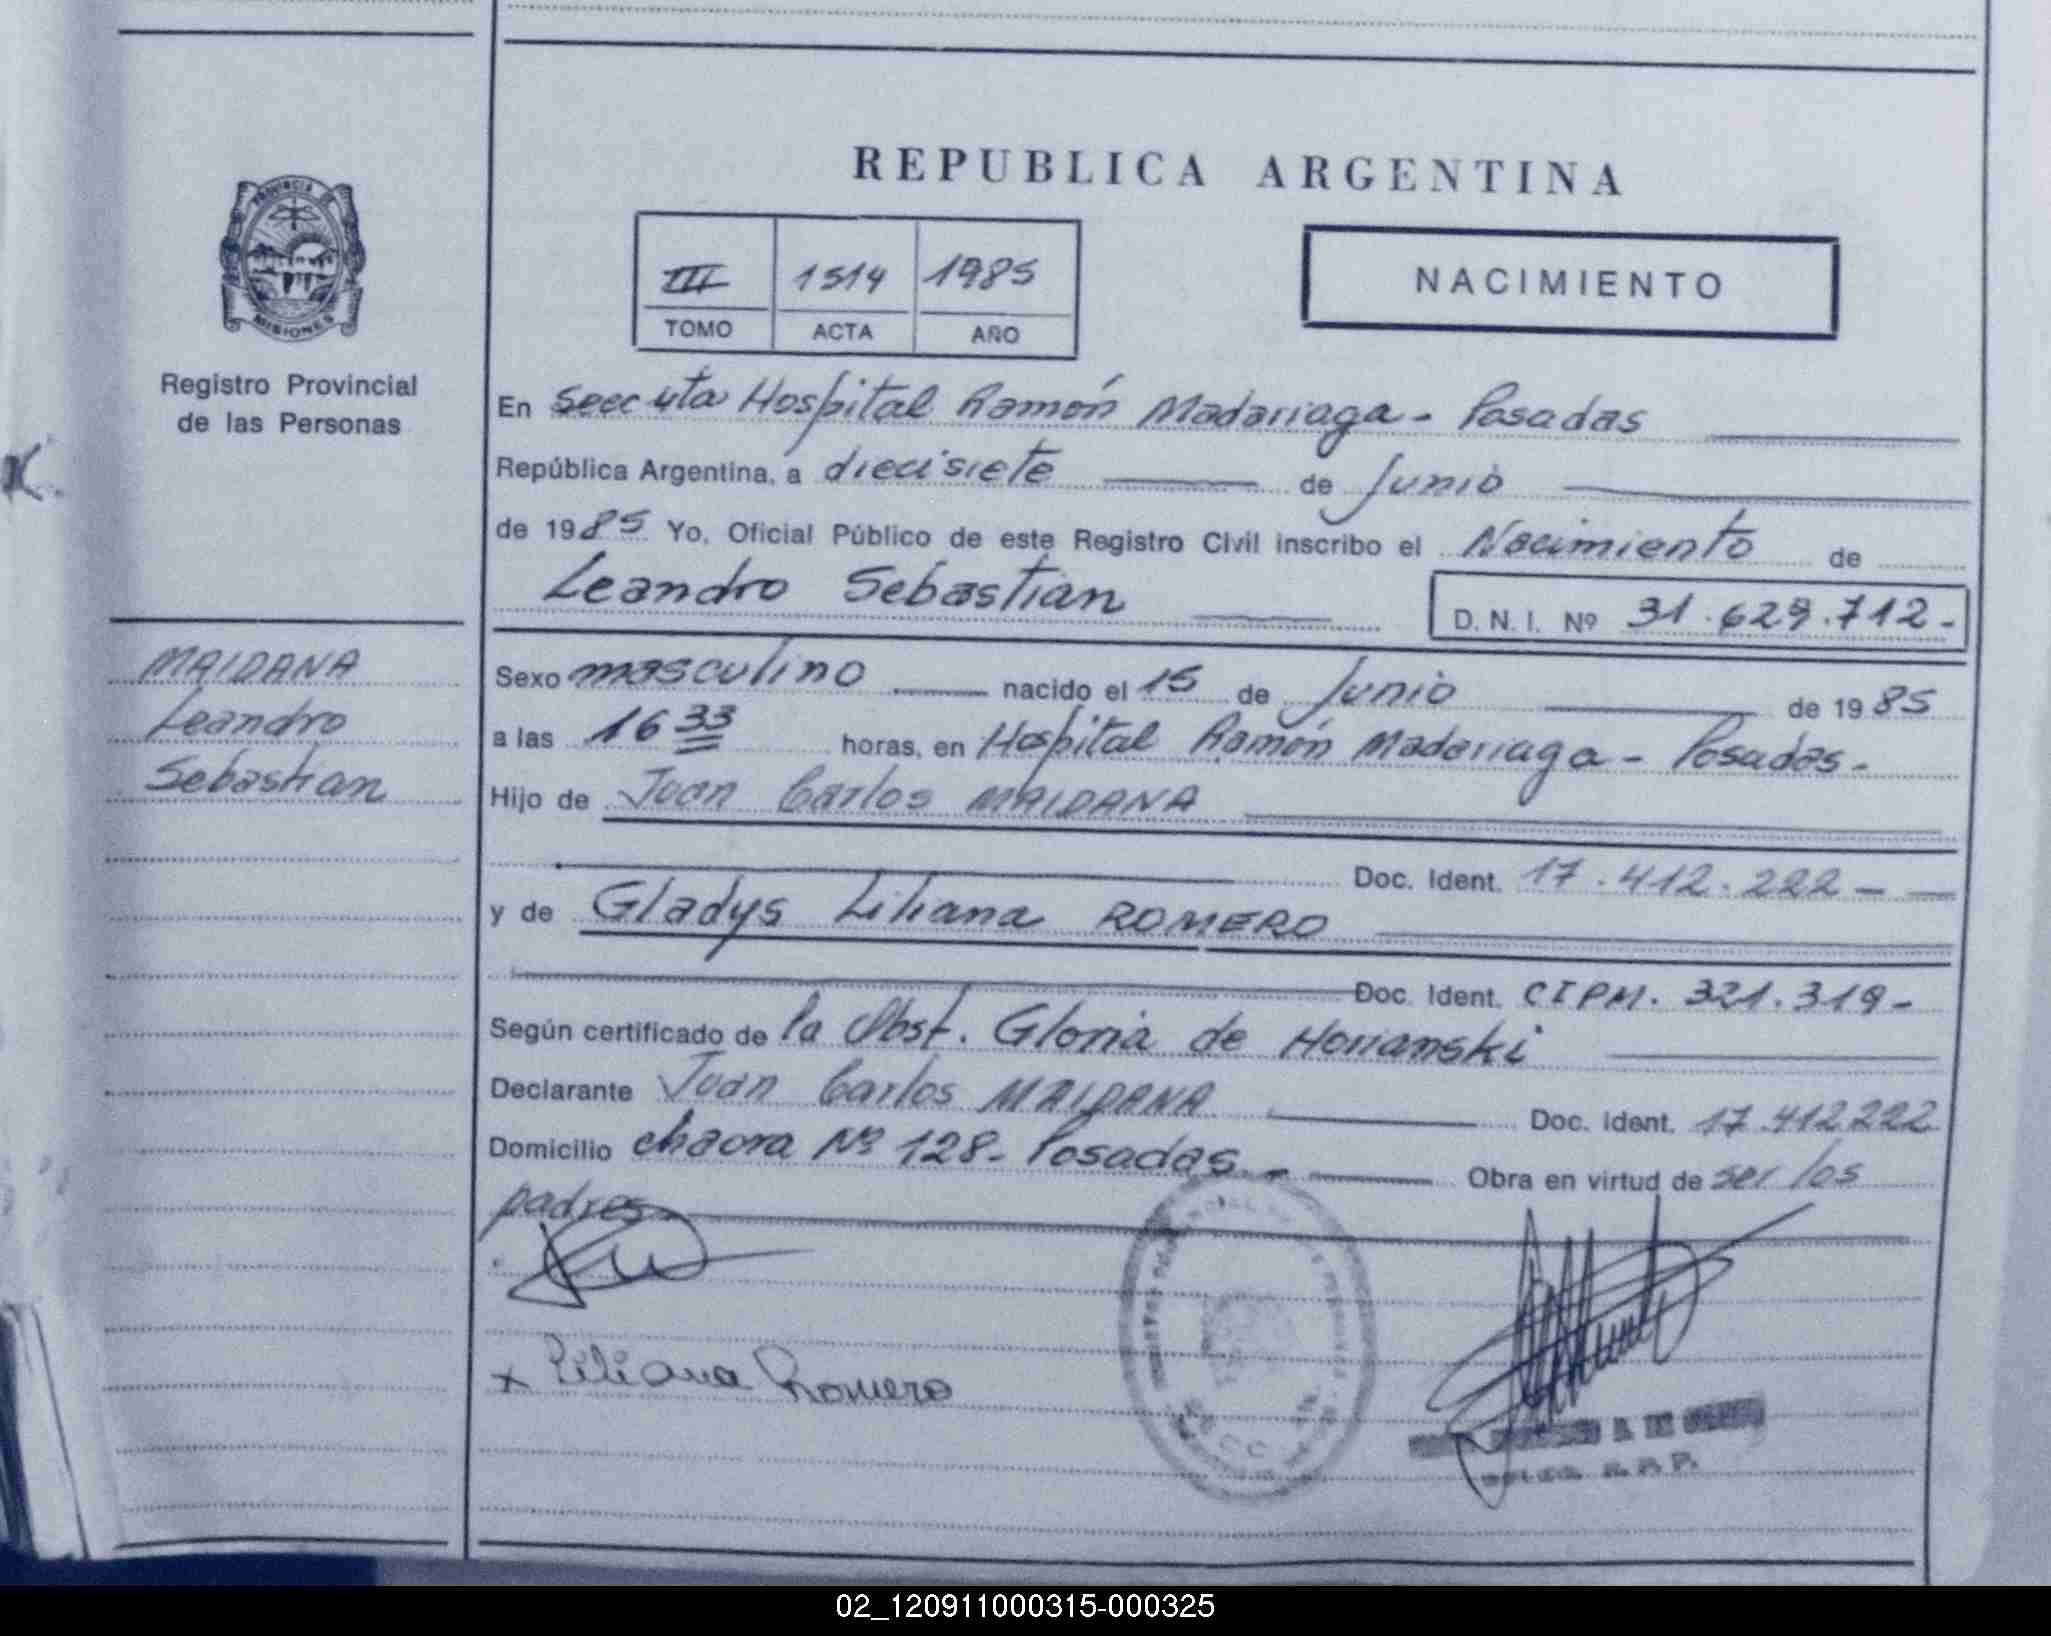 PROVINCIA DE
MISIONES
Registro Provincial
de las Personas
MAIDANA
Leandro
Sebastian
REPUBLICA ARGENTINA
III 1514 1985
TOMO ACTA AÑO
NACIMIENTO
En Hospital Ramón Madariaga - Posadas
República Argentina, a diecisiete de Junio
de 1985 Yo, Oficial Público de este Registro Civil inscribo el Nacimiento de
Leandro Sebastian
D. N. I. Nº 31.629.712-
Sexo masculino nacido el 15 de Junio de 1985
a las 16 33 horas, en Hospital Ramón Madariaga - Posadas.
Hijo de Juan Carlos MAIDANA
Doc. Ident. 17.412.222 -
y de Gladys Liliana ROMERO
Doc. Ident. CIPM. 321.319-
Según certificado de la Obst. Gloria de Horianski
Declarante Juan Carlos MAIDANA Doc. Ident. 17.412.222
Domicilio chacra Nº 128- Posadas.- Obra en virtud de ser los
padres
x Liliana Romero
02_120911000315-000325